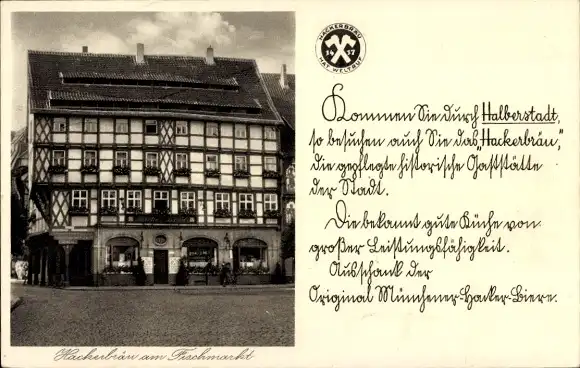 HACKERBRÄU
14 17
HAT WELTRUF
Kommen Sie durch Halberstadt,
so besuchen auch Sie das „Hackerbräu,"
die gepflegte historische Gaststätte
der Stadt.
Die bekannt gute Küche von
großer Leistungsfähigkeit.
Ausschank der
Original Münchener-Hacker-Biere.
Hackerbräu am Fischmarkt